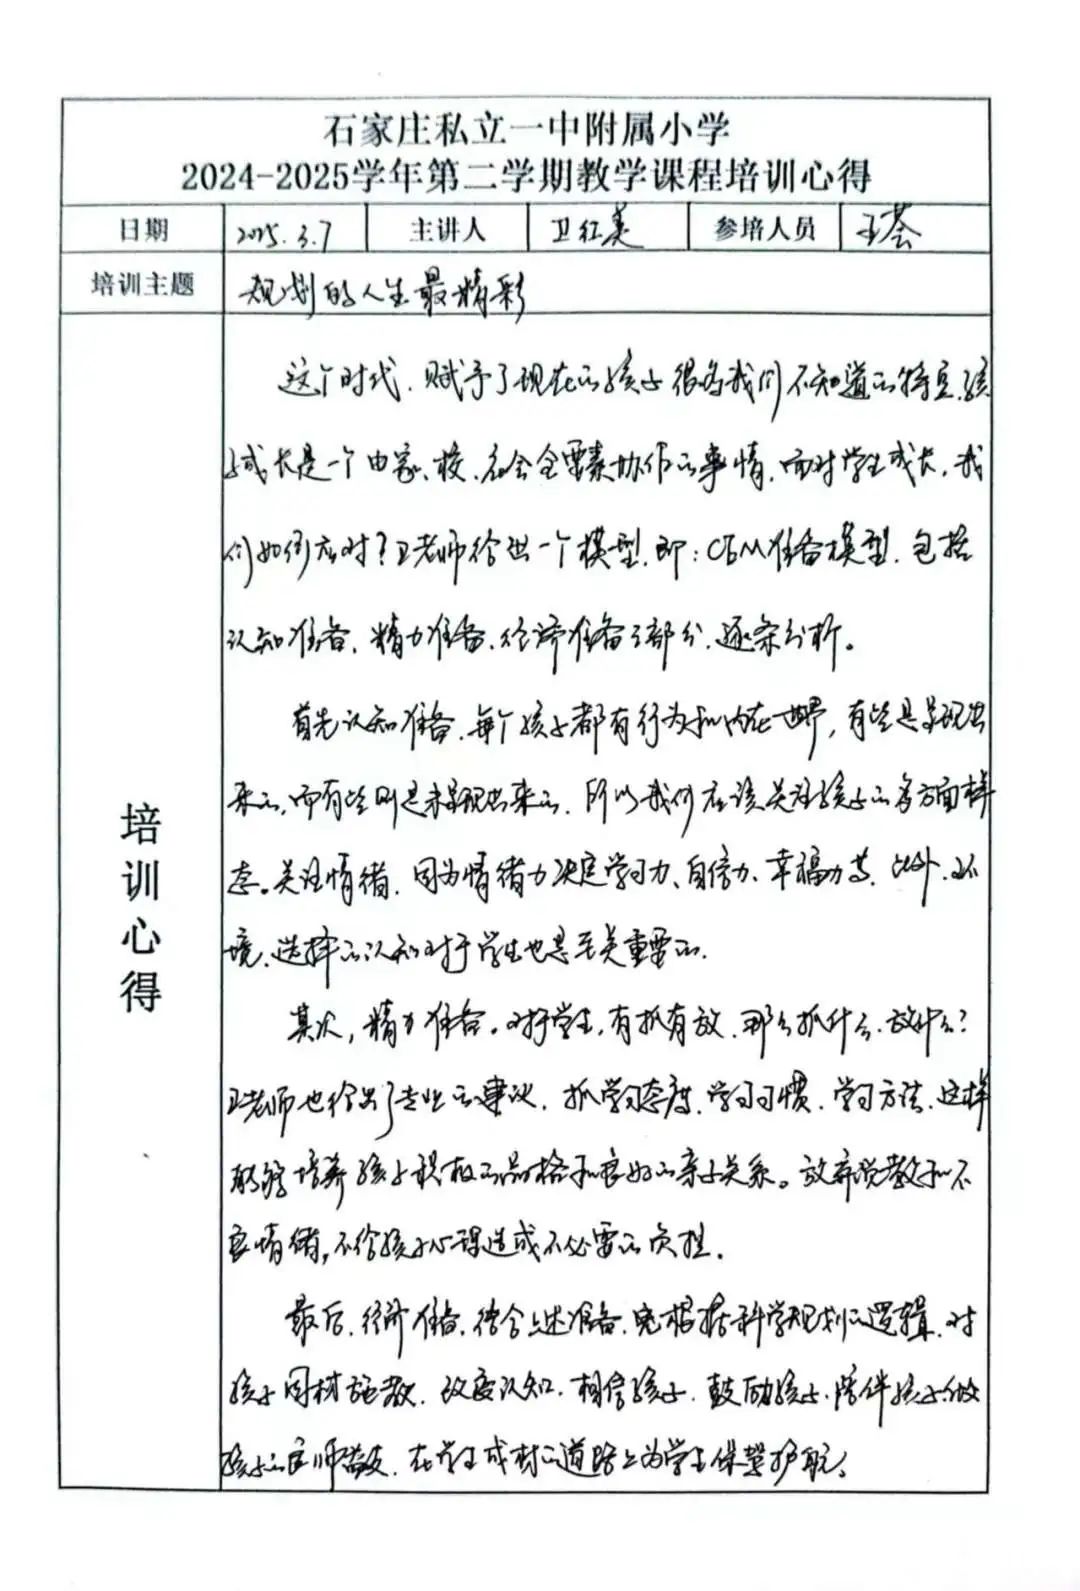 石家庄私立一中附属小学
2024-2025学年第二学期教学课程培训心得
日期 2025.3.7 主讲人 卫红英 参培人员 王荟
培训主题 规划的人生最精彩
培训心得
这个时代,赋予了现在的孩子很多我们不知道的特点,孩
子成长是一个由家、校、社会全要素协作的事情,面对学生成长,我
们如何应对?卫老师给出一个模型,即:CEM准备模型,包括
认知准备、精力准备、经济准备三部分,逐条分析。
首先认知准备,每个孩子都有行为和内在世界,有些是呈现出
来的,而有些则是未呈现出来的,所以我们应该关注孩子的多方面样
态。关注情绪,因为情绪力决定学习力、自信力、幸福力等,此外,环
境、选择的认知对于学生也是至关重要的.
其次,精力准备。对于学生,有抓有放,那么抓什么,放什么?
卫老师也给出了专业的建议,抓学习态度、学习习惯、学习方法,这样
能够培养孩子积极的品格和良好的亲子关系。放弃说教和不
良情绪,不给孩子心理造成不必要的负担.
最后,经济准备,结合上述准备,根据科学规划的逻辑,对
孩子因材施教,改变认知,相信孩子,鼓励孩子,陪伴孩子,做
孩子的良师益友,在学生成材的道路上为学生保驾护航。